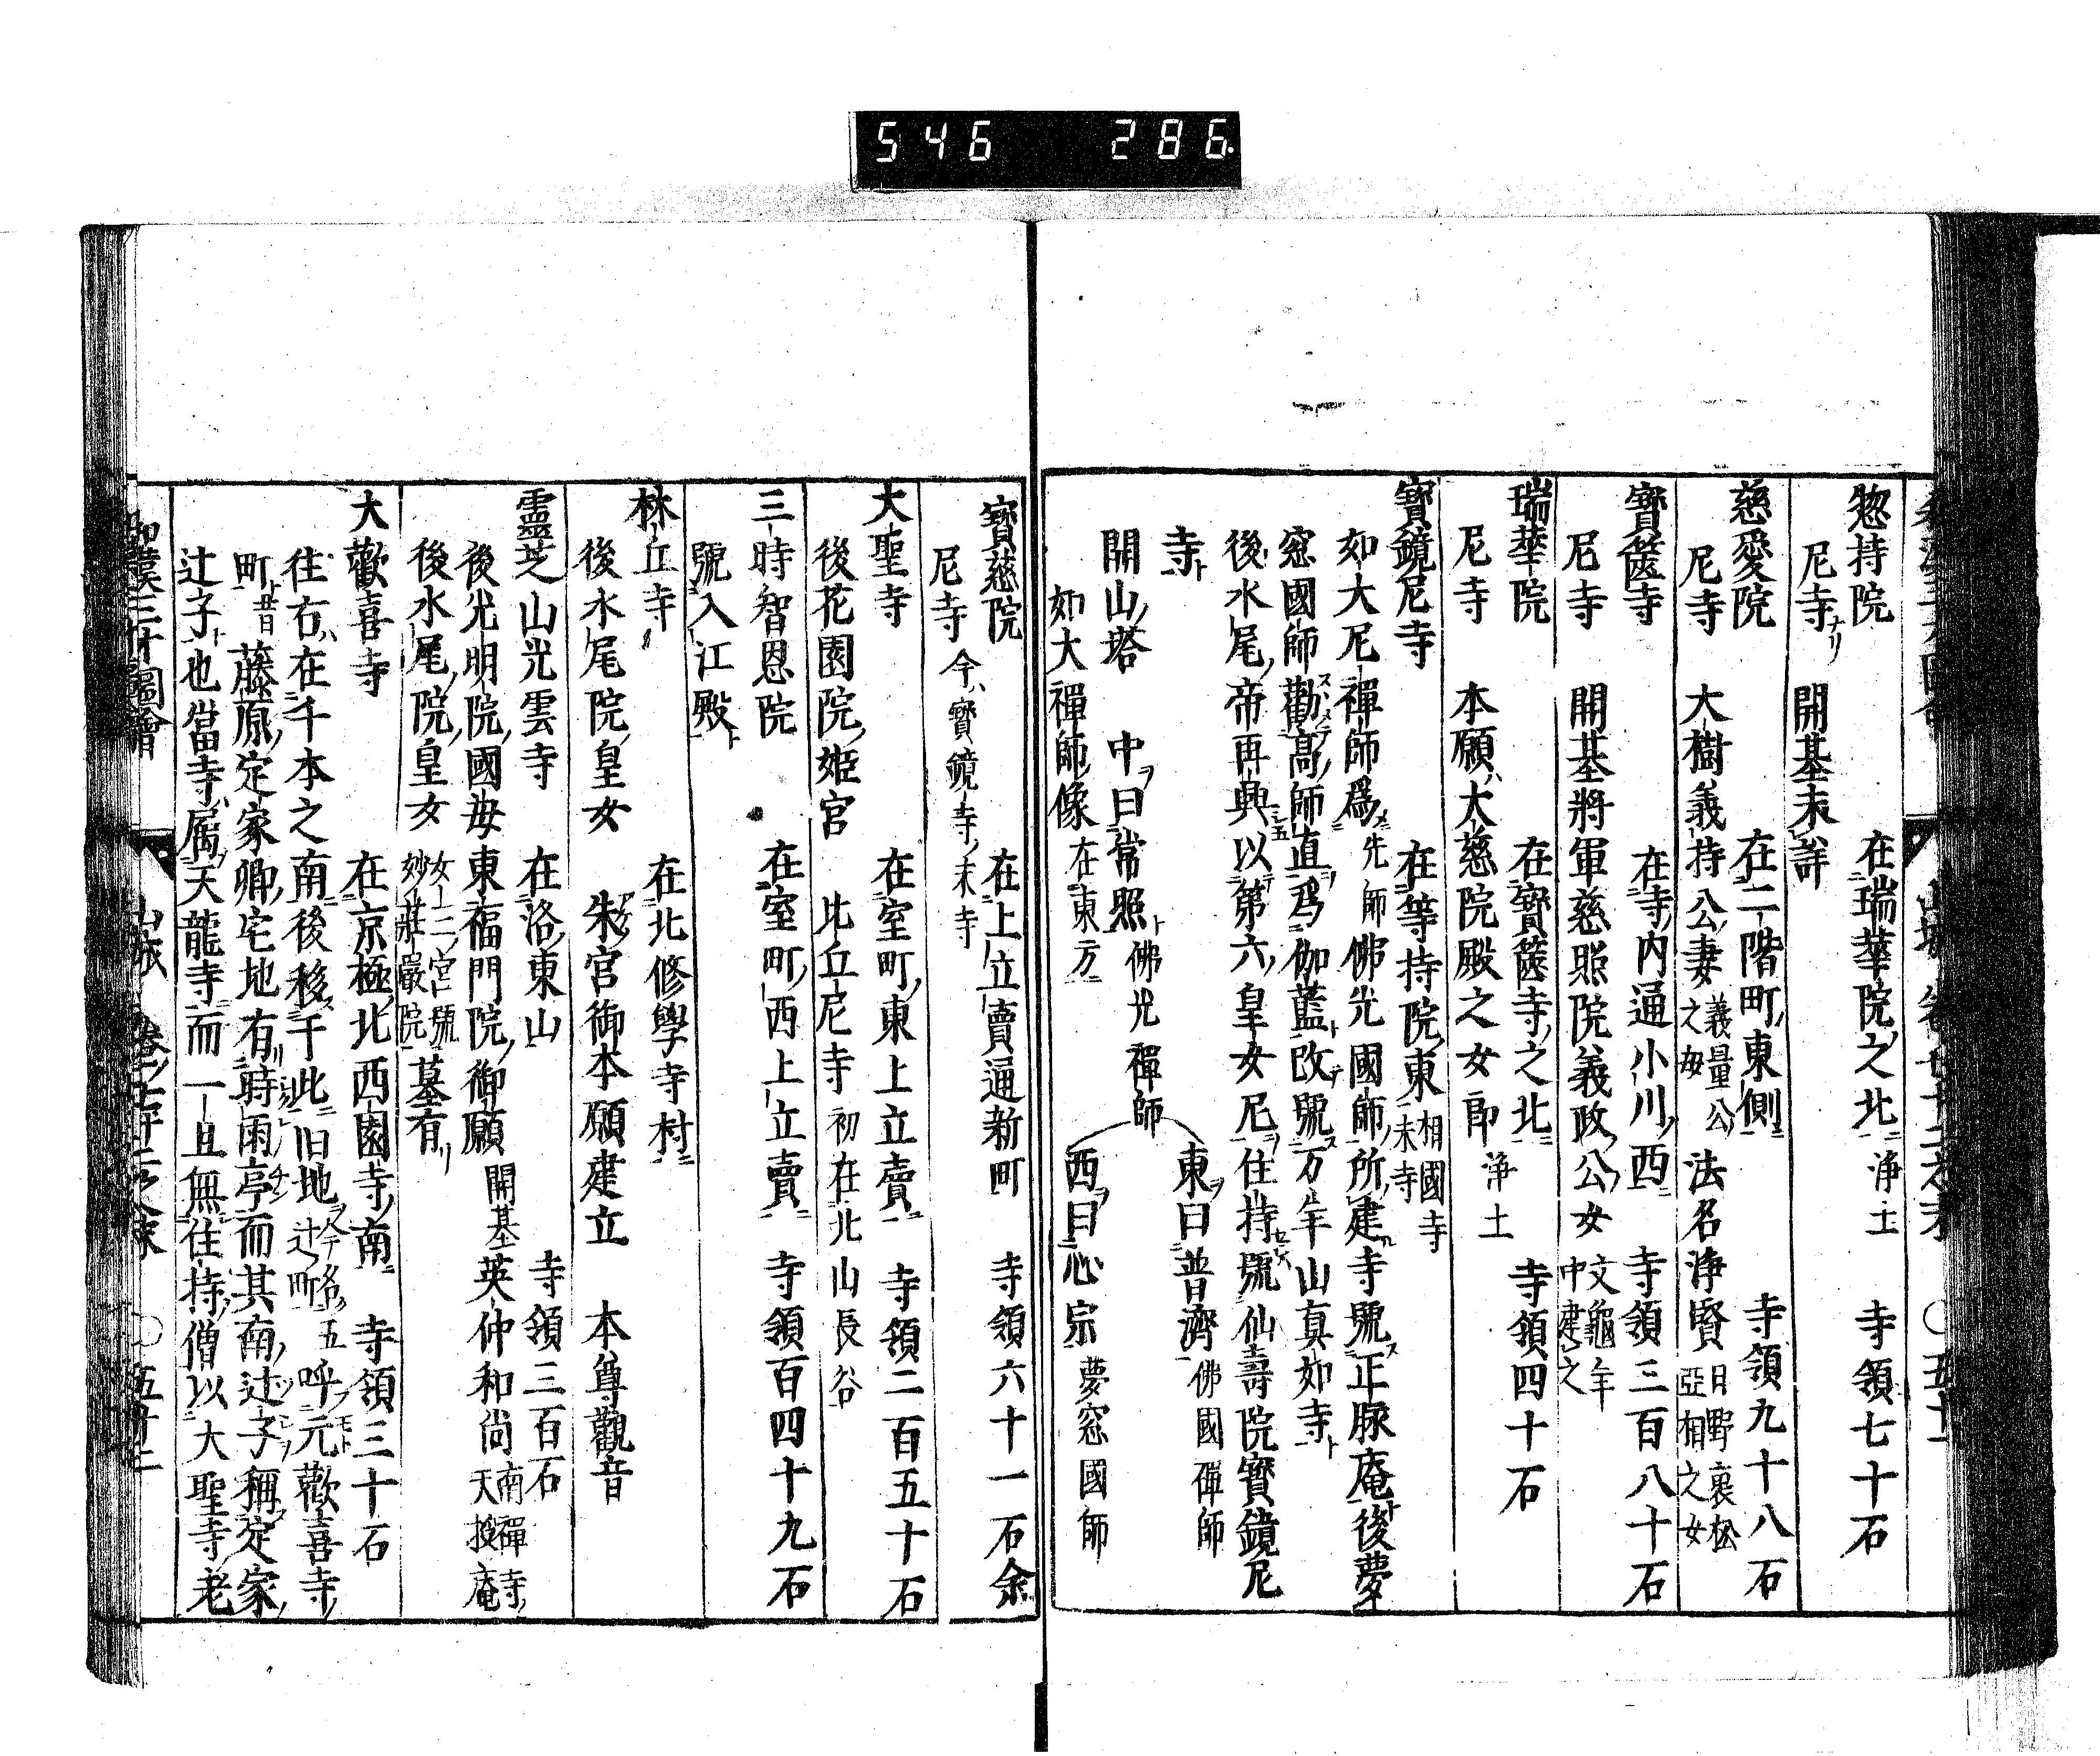 546 286.
惣持院 在瑞華院之北 浄土 寺領七十石
尼寺ナリ 開基未詳
慈愛院 在二階町東側 寺領九十八石
尼寺 大樹義持公妻 義量公之母 法名浄賢 日野裏松亞相之女
寶篋寺 在寺内通小川西 寺領三百八十石
尼寺 開基將軍慈照院義政公女 文龜年中建之
瑞華院 在寳篋寺之北 寺領四十石
尼寺 本願大慈院殿之女 浄土
寳鏡尼寺 在等持院東 相國寺末寺
如大尼禪師爲先師佛光國師所建寺號正脉庵後夢
窓國師勸高師直爲伽藍改號万年山真如寺
後水尾帝再興以第六皇女尼住持號仙壽院寳鏡尼
寺
開山塔 中曰常照 佛光禪師 東曰普濟 佛國禪師
如大禪師像 在東方 西曰心宗 夢窓國師
寳慈院 在上立賣通新町 寺領六十一石余
尼寺 今寳鏡寺末寺
大聖寺 在室町東上立賣 寺領二百五十石
後花園院姫宮 比丘尼寺 初在北山長谷
三時智恩院 在室町西上立賣 寺領百四十九石
號入江殿
林丘寺 在北修學寺村
後水尾院皇女 朱宮御本願建立 本尊觀音
靈芝山光雲寺 在洛東山 寺領三百石
後光明院國母東福門院御願 開基英仲和尚 南禪寺天授庵
後水尾院皇女 女二宮號妙莊嚴院 墓有
大歡喜寺 在京極北西園寺南 寺領三十石
往右在千本之南後移于此旧地 今名五辻町 呼元歡喜寺
町昔藤原定家卿宅地有時雨亭而其南辻子稱定家
辻子也當寺屬天龍寺而一旦無住持僧以大聖寺老